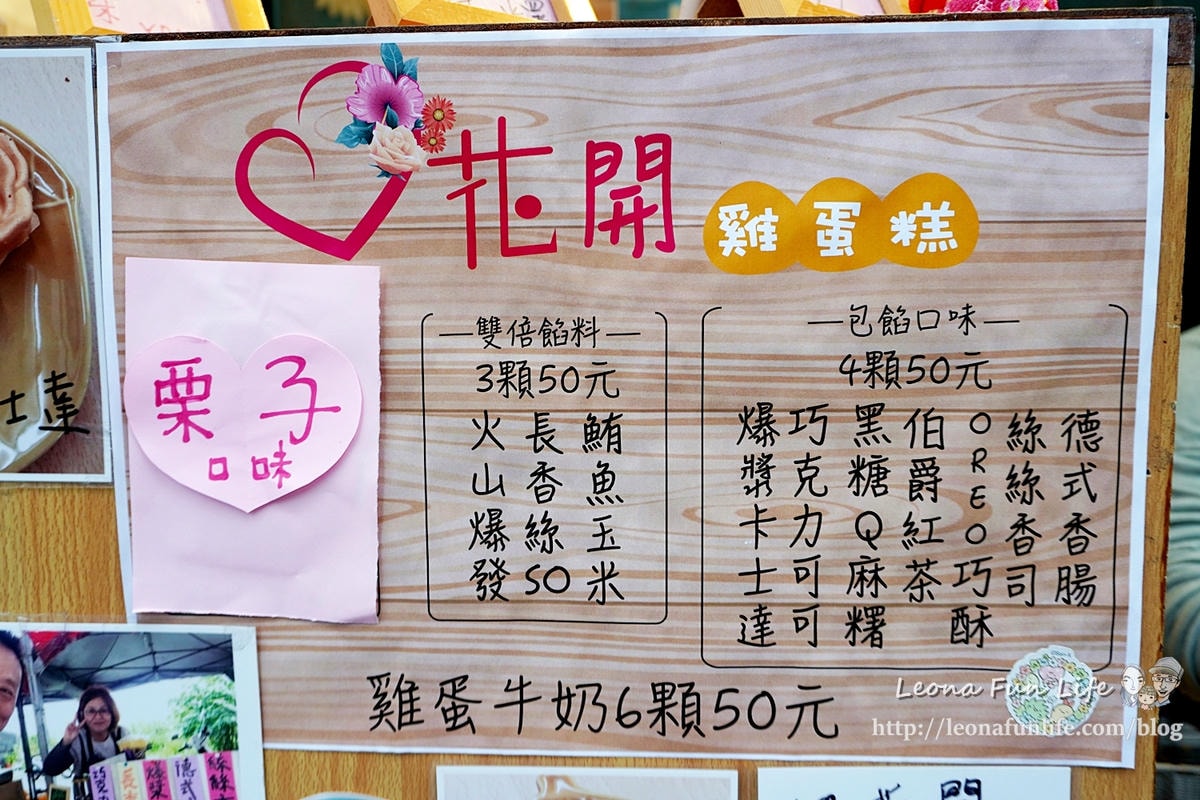 花開
雞蛋糕
栗子
口味
雙倍餡料
3顆50元
鮪魚玉米
長香絲SO
火山爆發
包餡口味
4顆50元
德式香腸
絲絲香司
OREO巧酥
伯爵紅茶
黑糖Q麻糬
巧克力可可
爆漿卡士達
雞蛋牛奶6顆50元
士達
德式
Leona Fun Life
http://leonafunlife.com/blog